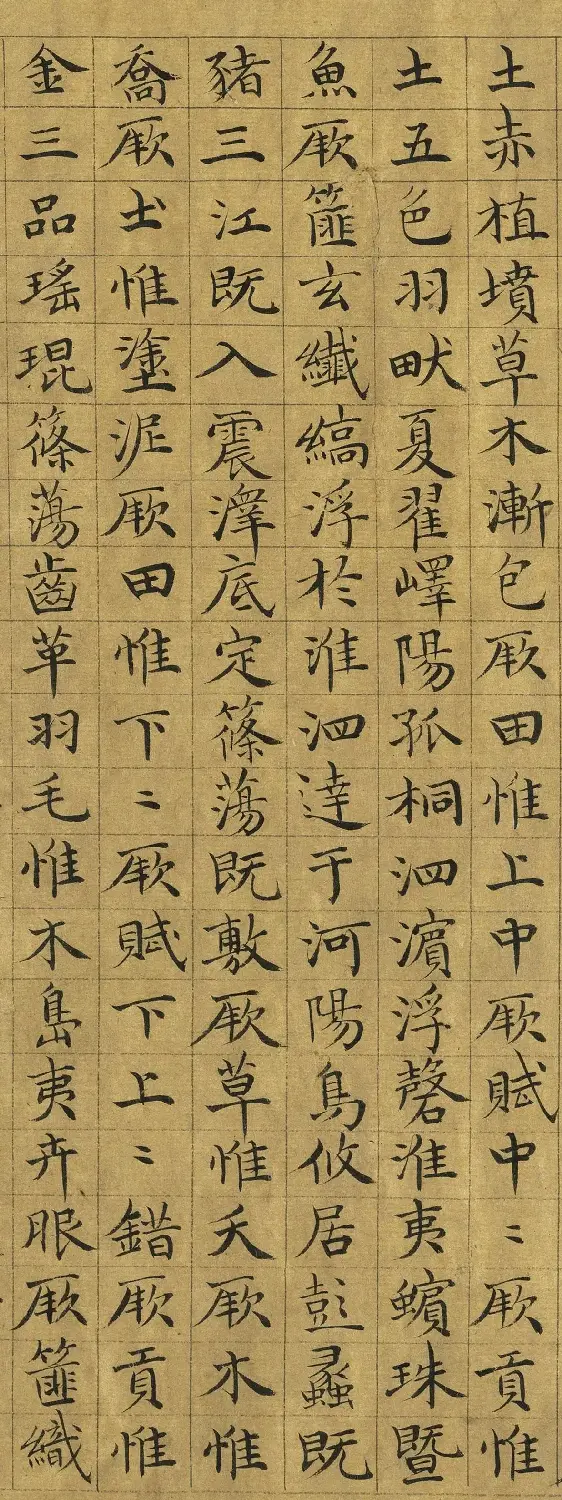 土赤植墳草木漸包厥田惟上中厥賦中〻厥貢惟
土五色羽畎夏翟嶧陽孤桐泗濱浮磬淮夷蠙珠暨
魚厥篚玄纖縞浮於淮泗達于河陽鳥攸居彭蠡既
豬三江既入震澤底定篠蕩既敷厥草惟夭厥木惟
喬厥土惟塗泥厥田惟下〻厥賦下上〻錯厥貢惟
金三品瑤琨篠蕩齒革羽毛惟木島夷卉服厥篚織